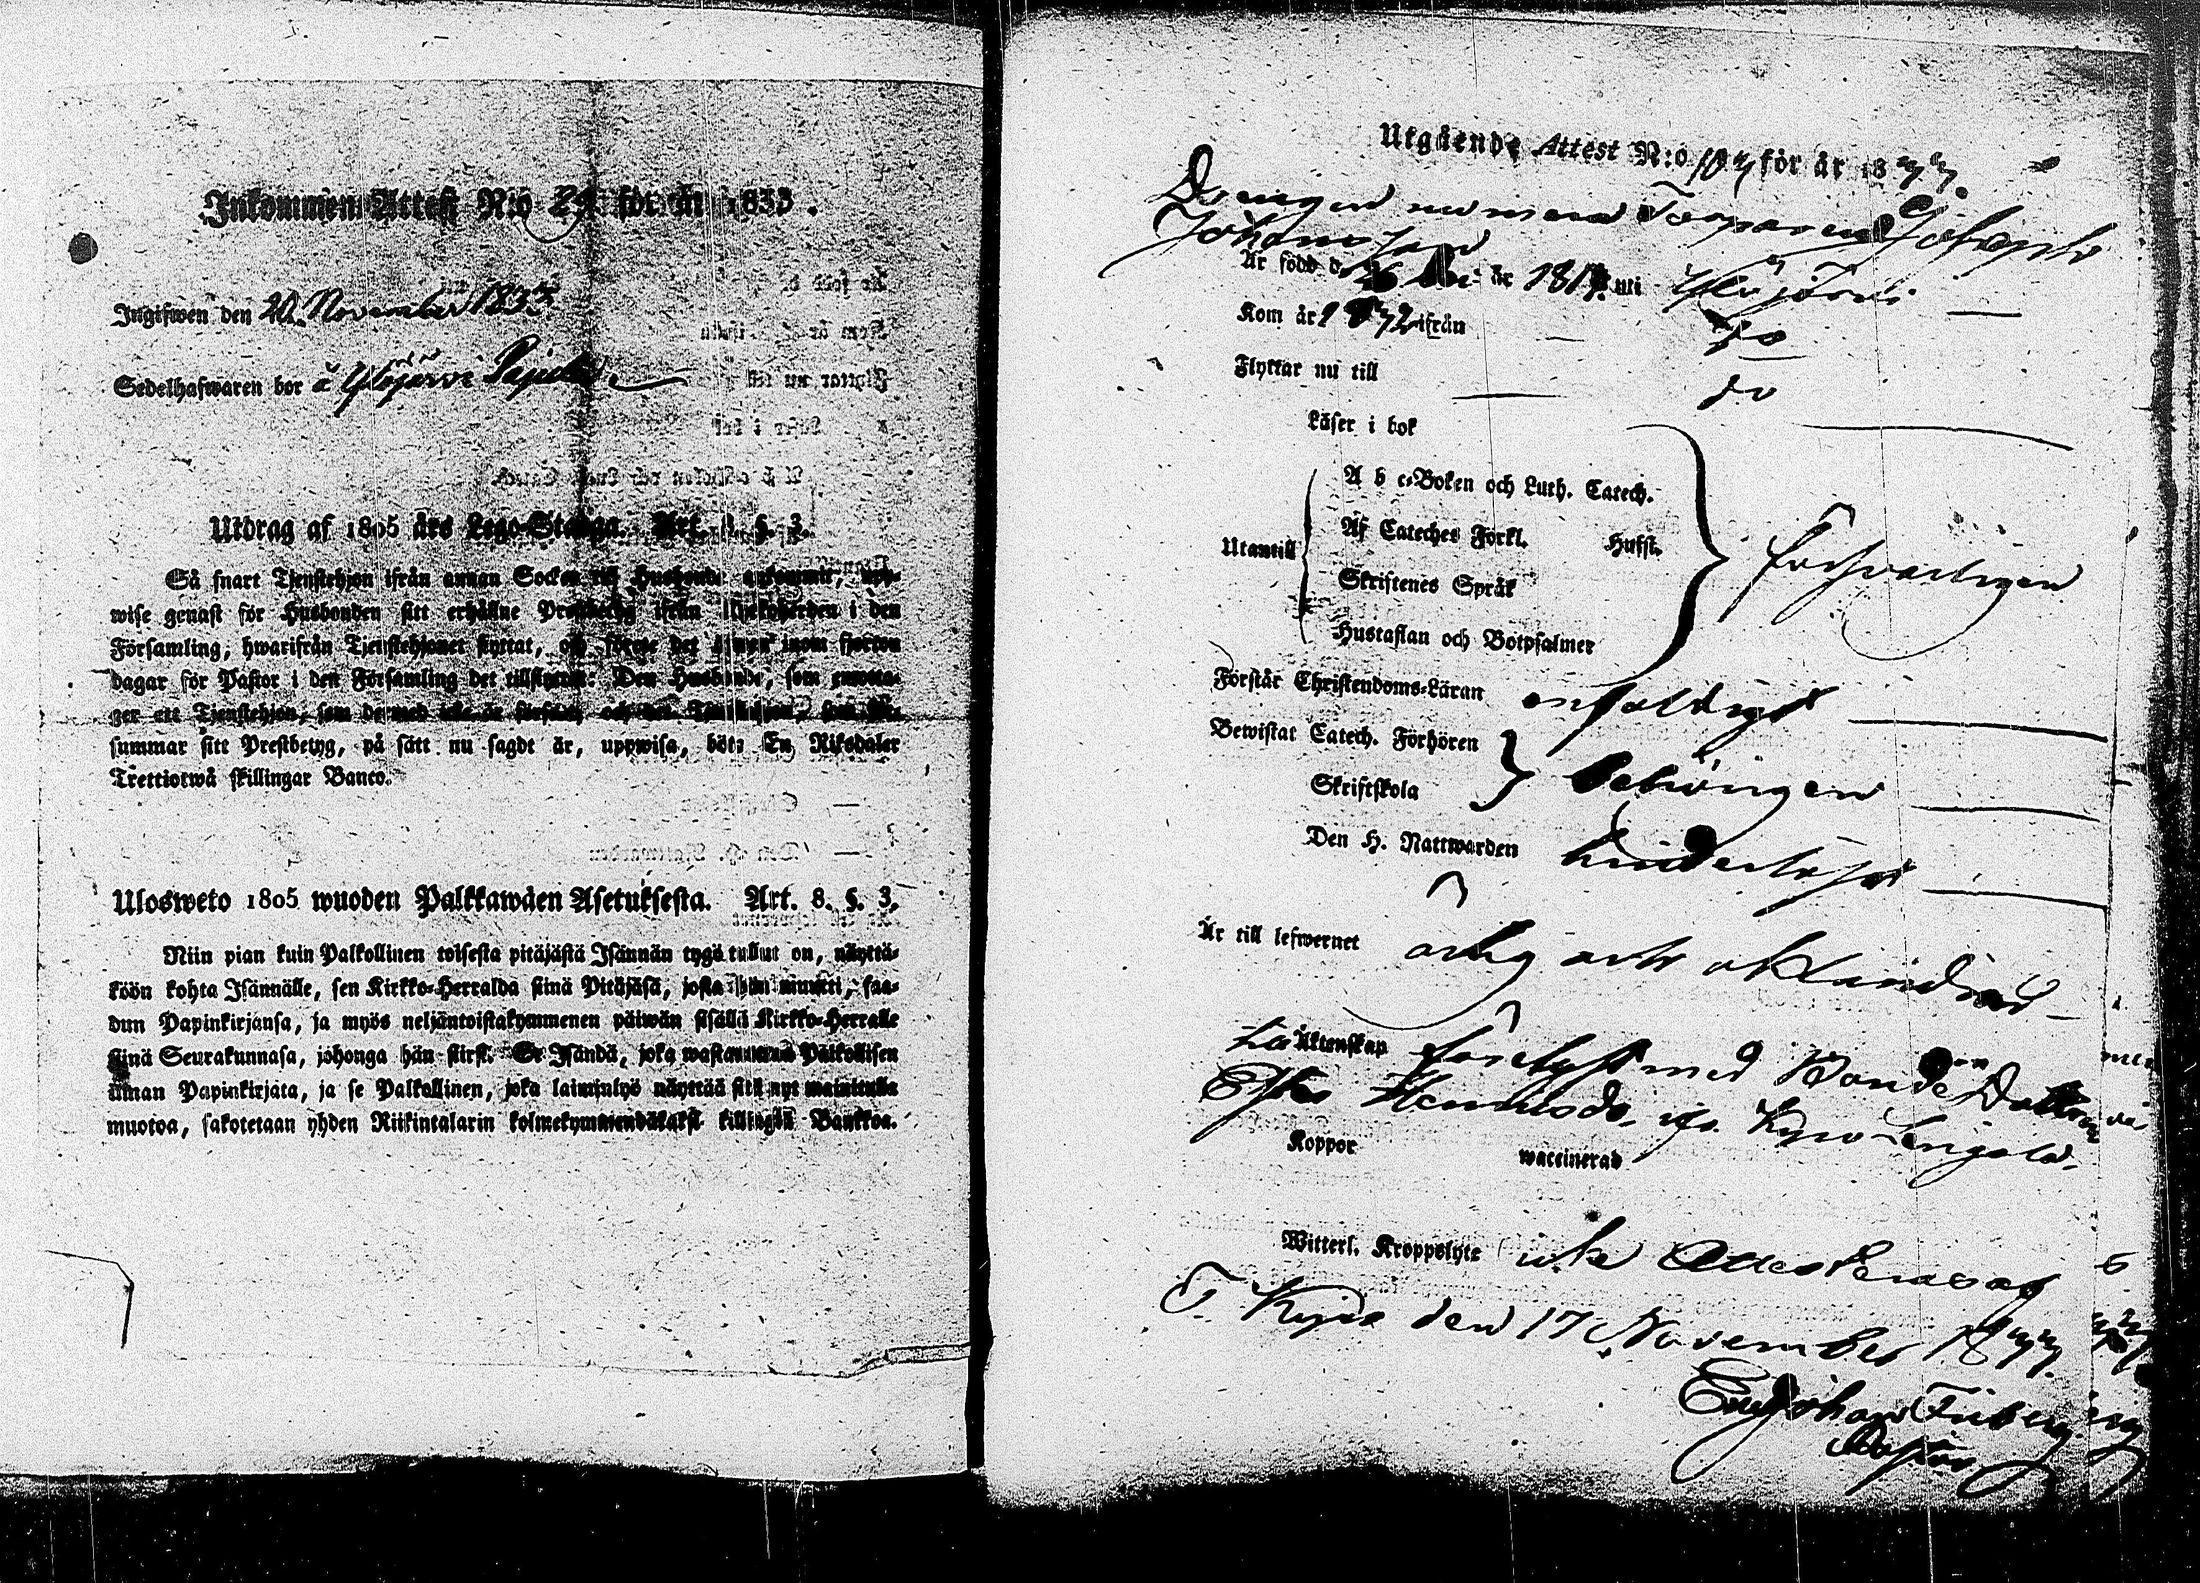 Inkommen Attest N:o 29 för år 1833.
Ingifwen den 20. November 1833
Sedelhafwaren bor å Ylöjärvi
Utdrag af 1805 års Lego-Stadga. Art. 8. §. 3.
Så snart Tjenstehjon ifrån annan Socken till Husbonde ankommit, upp-
wise genast för Husbonden sitt erhållne Prestbetyg ifrån Kyrkoherden i den
Församling, hwarifrån Tjenstehjonet flyttat, och förete det ännu inom fjorton
dagar för Pastor i den Församling det tillflyttat: Den Husbonde, som emotta-
ger ett Tjenstehjon, som dermed icke är försedt, och det Tjenstehjon, som för-
summar sitt Prestbetyg, på sätt nu sagdt är, uppwisa, böte En Riksdaler
Trettiotwå skillingar Banco.
Ulosweto 1805 wuoden Palkkawäen Asetuksesta. Art. 8. §. 3.
Niin pian kuin Palkollinen toisesta pitäjästä Isännän tygö tullut on, näyttä-
köön kohta Isännälle, sen Kirkko-Herralda siinä Pitäjäsä, josta hän muutti, saa-
dun Papinkirjansa, ja myös neljäntoistakymmenen päiwän sisällä Kirkko-Herralle
siinä Seurakunnasa, johonga hän siirsi. Se Isändä, joka wastaanottaa Palkollisen
ilman Papinkirjata, ja se Palkollinen, joka laiminlyö näyttää sitä nyt mainitulla
muotoa, sakotetaan yhden Riikintalarin kolmekymmendäkaksi killingiä Bankkoa.
Utgående Attest N:o 107 för år 1833.
Drengen numera Torparen
Johansson
Är född d. år 181 uti Ylöjärvi
Kom år 1832 ifrån do
Flyttar nu till do
Läser i bok
A b c-Boken och Luth. Catech.
Utantill Af Cateches Förkl. Hufst. försvarligen
Skriftenes Språk
Hustaflan och Botpsalmer
Förstår Christendoms-Läran enfaldigt
Bewistat Catech. Förhören
Skriftskola behörigen
Den H. Nattwarden
Är till lefwernet ärlig och oklandrad
Till Äktenskap förelyst med Bonde Dottren
Henricsdr ifr. Kyro
Koppor waccinerad
Witterl. Kroppslyte icke Attesteras af
T. Kyro den 17 November 1833.
Johan Friberg
Pastor